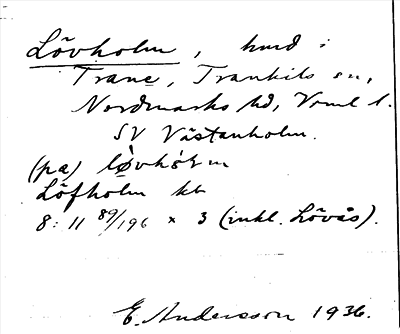 Lövholm, hmd i
Trane, Trankils sn,
Nordmarks hd, Vrml l.
SV Västanholm.
(pa) løvhòlm
Löfholm kb
8:11 89/196 x 3 (inkl. Lövås).
E. Andersson 1936.